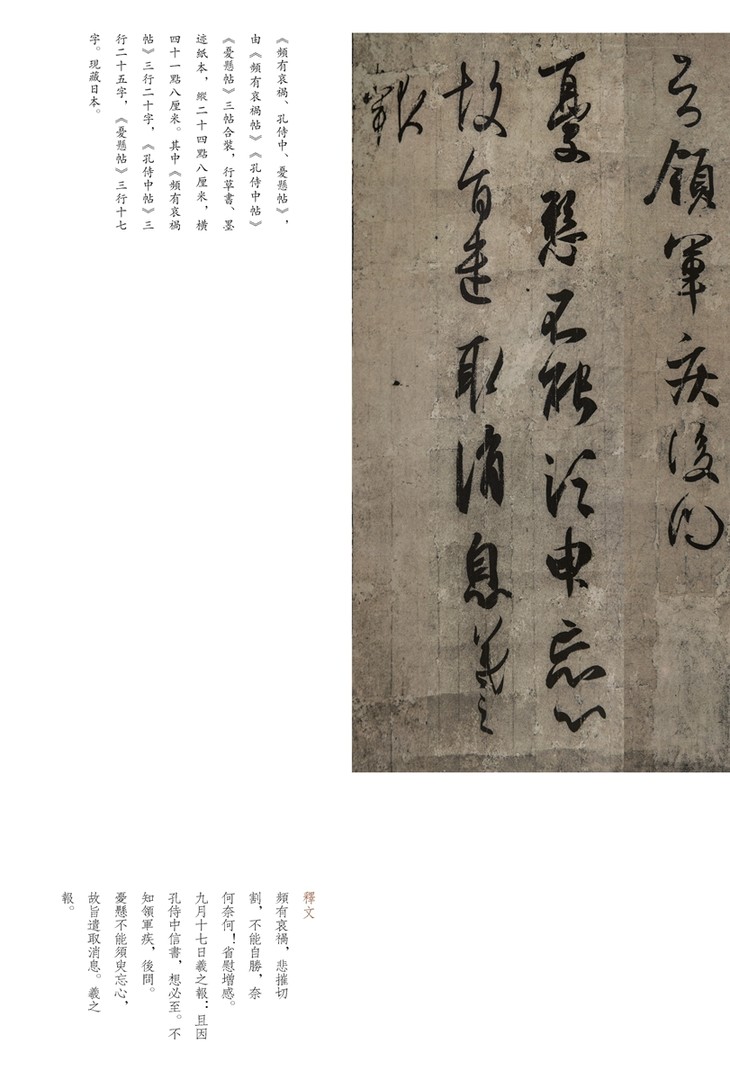 知領軍疾後問
憂懸不能須臾忘心
故旨遣取消息羲之
報
《頻有哀禍、孔侍中、憂懸帖》，
由《頻有哀禍帖》《孔侍中帖》
《憂懸帖》三帖合裝，行草書、墨
迹紙本，縱二十四點八厘米，橫
四十一點八厘米。其中《頻有哀禍
帖》三行二十字，《孔侍中帖》三
行二十五字，《憂懸帖》三行十七
字。現藏日本。
釋文
頻有哀禍，悲摧切
割，不能自勝，奈
何奈何！省慰增感。
九月十七日羲之報：且因
孔侍中信書，想必至。不
知領軍疾，後問。
憂懸不能須臾忘心，
故旨遣取消息。羲之
報。